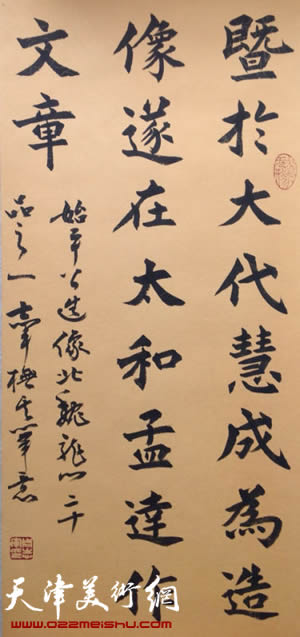 暨於大代慧成為造
像遂在太和孟達作
文章
始平公造像北魏龍門二十
品之一
天津美術網
www.022meishu.com